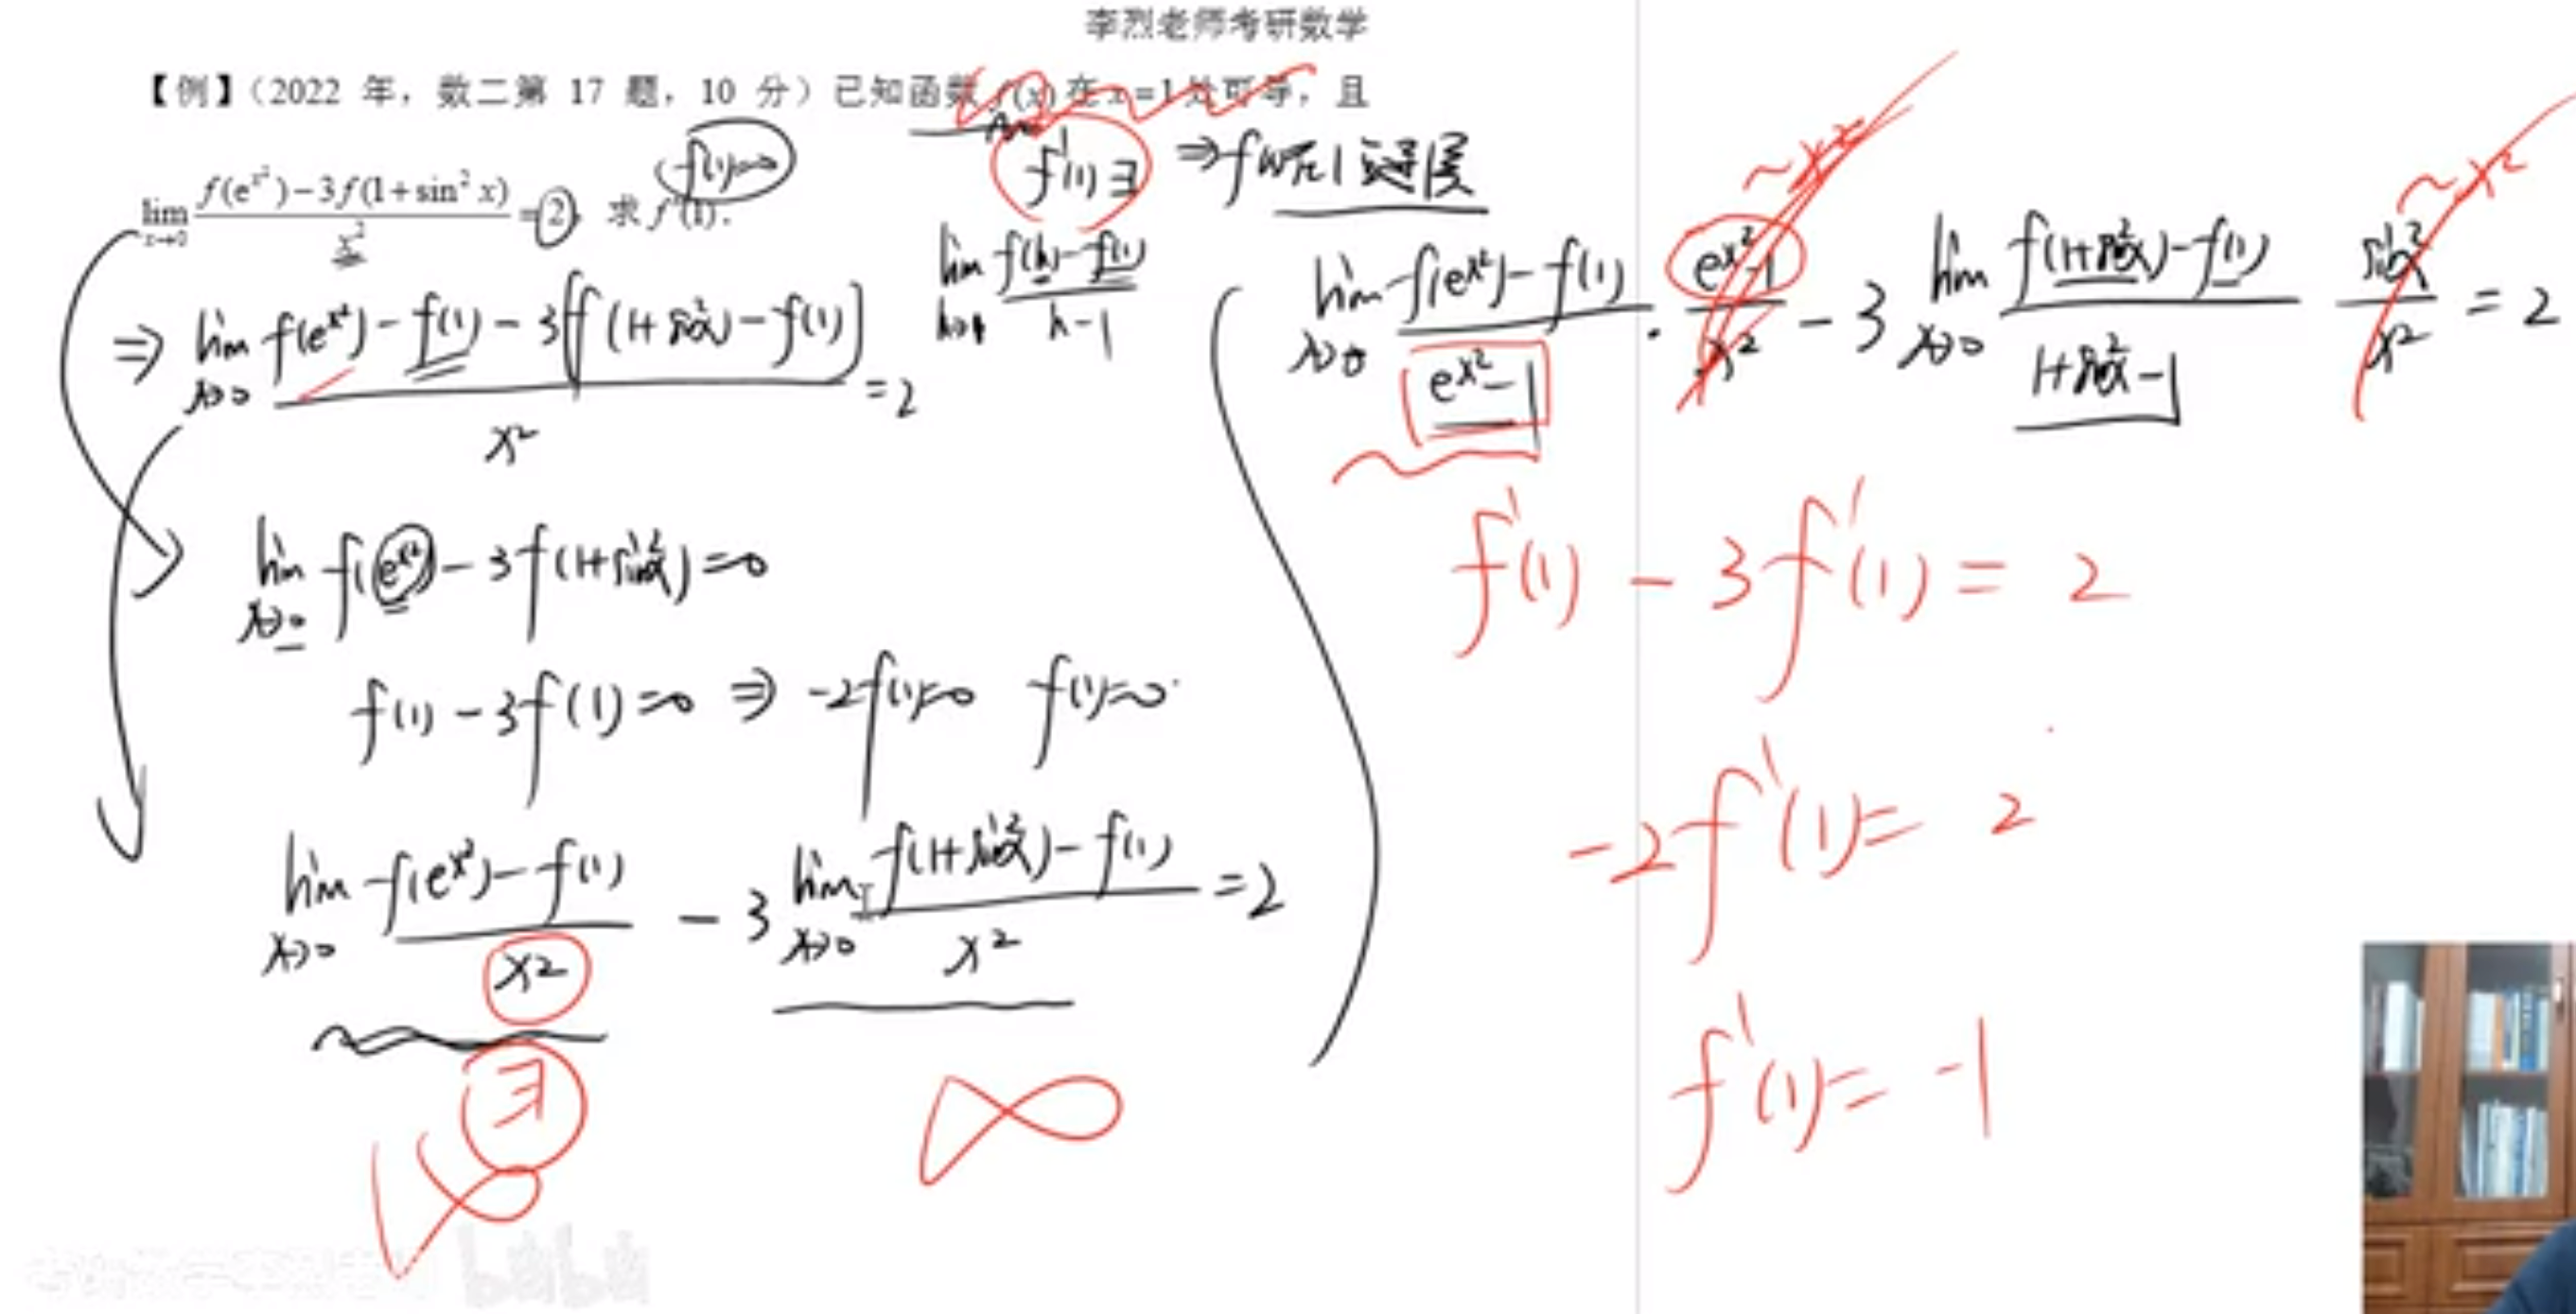 李烈老师考研数学
【例】(2022 年，数二第 17 题，10 分) 已知函数 f(x) 在 x=1 处可导，且
lim x→0 (f(e^{x²})-3f(1+sin² x))/x² =2，求 f'(1).
f(1)=0
f'(1)∃ ⇒ f(x)在1处连续
lim h→1 (f(h)-f(1))/(h-1)
⇒ lim x→0 (f(e^{x²})-f(1)-3[f(1+sin²x)-f(1)])/x² =2
lim x→0 f(e^{x²})-3f(1+sin²x)=0
f(1)-3f(1)=0 ⇒ -2f(1)=0 f(1)=0.
lim x→0 (f(e^{x²})-f(1))/x² - 3 lim x→0 (f(1+sin²x)-f(1))/x² =2
∃
∞
~x² ~x²
lim x→0 (f(e^{x²})-f(1))/(e^{x²}-1) · (e^{x²}-1)/x² - 3 lim x→0 (f(1+sin²x)-f(1))/(1+sin²x-1) sin²x/x² =2
f'(1) - 3f'(1) = 2
-2f'(1) = 2
f'(1) = -1
bilibili